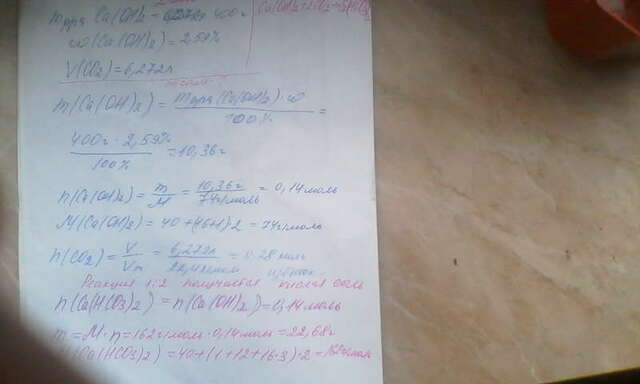 mр-ра Ca(OH)2 = 400г
ω(Ca(OH)2) = 2,59%
V(CO2) = 6,272л
Ca(OH)2+2CO2=
m(Ca(OH)2) = mр-ра(Ca(OH)2)·ω / 100% =
400г · 2,59% / 100% = 10,36г
n(Ca(OH)2) = m/M = 10,36г / 74г/моль = 0,14моль
M(Ca(OH)2) = 40+(16+1)·2 = 74г/моль
n(CO2) = V/Vm = 6,272л / = 0,28моль
Реакция 1:2 получается кислая соль
n(Ca(HCO3)2) = n(Ca(OH)2) = 0,14моль
m = M·n = 162г/моль · 0,14моль = 22,68г
M(Ca(HCO3)2) = 40+(1+12+16·3)·2 = 162г/моль